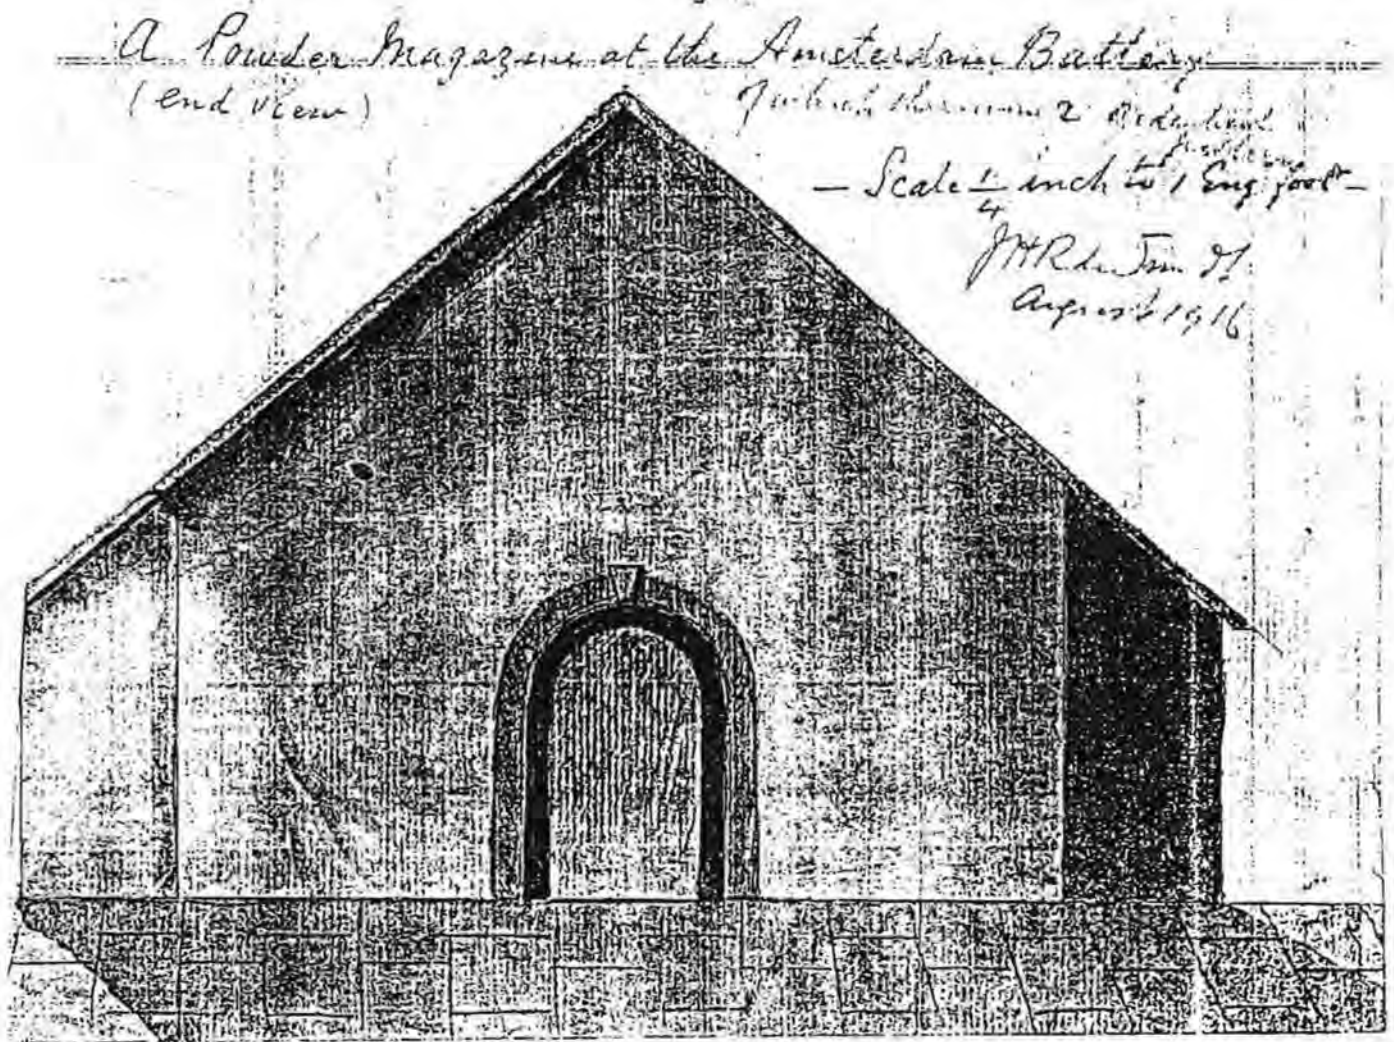 A Powder Magazine at the Amsterdam Battery
(end view)
of which there were 2
— Scale 1/4 inch to 1 Eng. foot —
August 1916